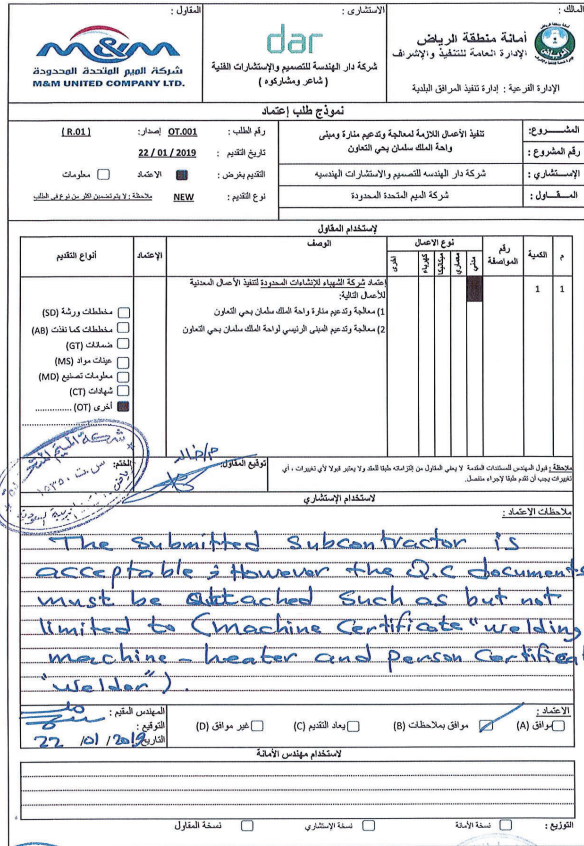 المالك :
أمانة منطقة الرياض
الإدارة العامة للتنفيذ والإشراف
الإدارة الفرعية : إدارة تنفيذ المرافق البلدية
الاستشاري :
dar
شركة دار الهندسة للتصميم والإستشارات الفنية
( شاعر ومشاركوه )
المقاول :
M&M
شركة الميم المتحدة المحدودة
M&M UNITED COMPANY LTD.
نموذج طلب إعتماد
المشـــروع: تنفيذ الأعمال اللازمة لمعالجة وتدعيم منارة ومبنى
رقم المشروع : واحة الملك سلمان بحي التعاون
الإستشاري : شركة دار الهندسه للتصميم والاستشارات الهندسيه
المقـــاول : شركة الميم المتحدة المحدودة
رقم الطلب : OT.001 إصدار: ( R.01 )
تاريخ التقديم : 22 / 01 / 2019
التقديم بغرض : الاعتماد معلومات
نوع التقديم : NEW ملاحظة : لا يتم تضمين اكثر من نوع في الطلب
لإستخدام المقاول
م الكمية رقم المواصفة نوع الاعمال الوصف الإعتماد أنواع التقديم
مدني معماري ميكانيكا كهرباء اخرى
1 1 إعتماد شركة الشهباء للإنشاءات المحدودة لتنفيذ الأعمال المعدنية
للأعمال التالية:
1) معالجة وتدعيم منارة واحة الملك سلمان بحي التعاون
2) معالجة وتدعيم المبنى الرئيسي لواحة الملك سلمان بحي التعاون
مخططات ورشة (SD)
مخططات كما نفذت (AB)
ضمانات (GT)
عينات مواد (MS)
معلومات تصنيع (MD)
شهادات (CT)
أخرى (OT) ..............
ملاحظة : قبول المهندس للمستندات المقدمة لا يعفي المقاول من إلتزاماته طبقا للعقد ولا يعتبر قبولا لأي تغييرات ، أي
تغييرات يجب أن تقدم طبقا لإجراء منفصل.
توقيع المقاول:
م/خالد
الختم:
لاستخدام الإستشاري
ملاحظات الاعتماد :
The submitted Subcontractor is
acceptable ; However the Q.C documents
must be attached Such as but not
limited to (machine Certificate "welding
machine - heater and person Certificat
"welder").
الاعتماد :
موافق (A) موافق بملاحظات (B) يعاد التقديم (C) غير موافق (D)
المهندس المقيم :
التوقيع :
التاريخ 22 /01 / 2019
لاستخدام مهندس الأمانة
التوزيع : نسخة الأمانة نسخة الإستشاري نسخة المقاول